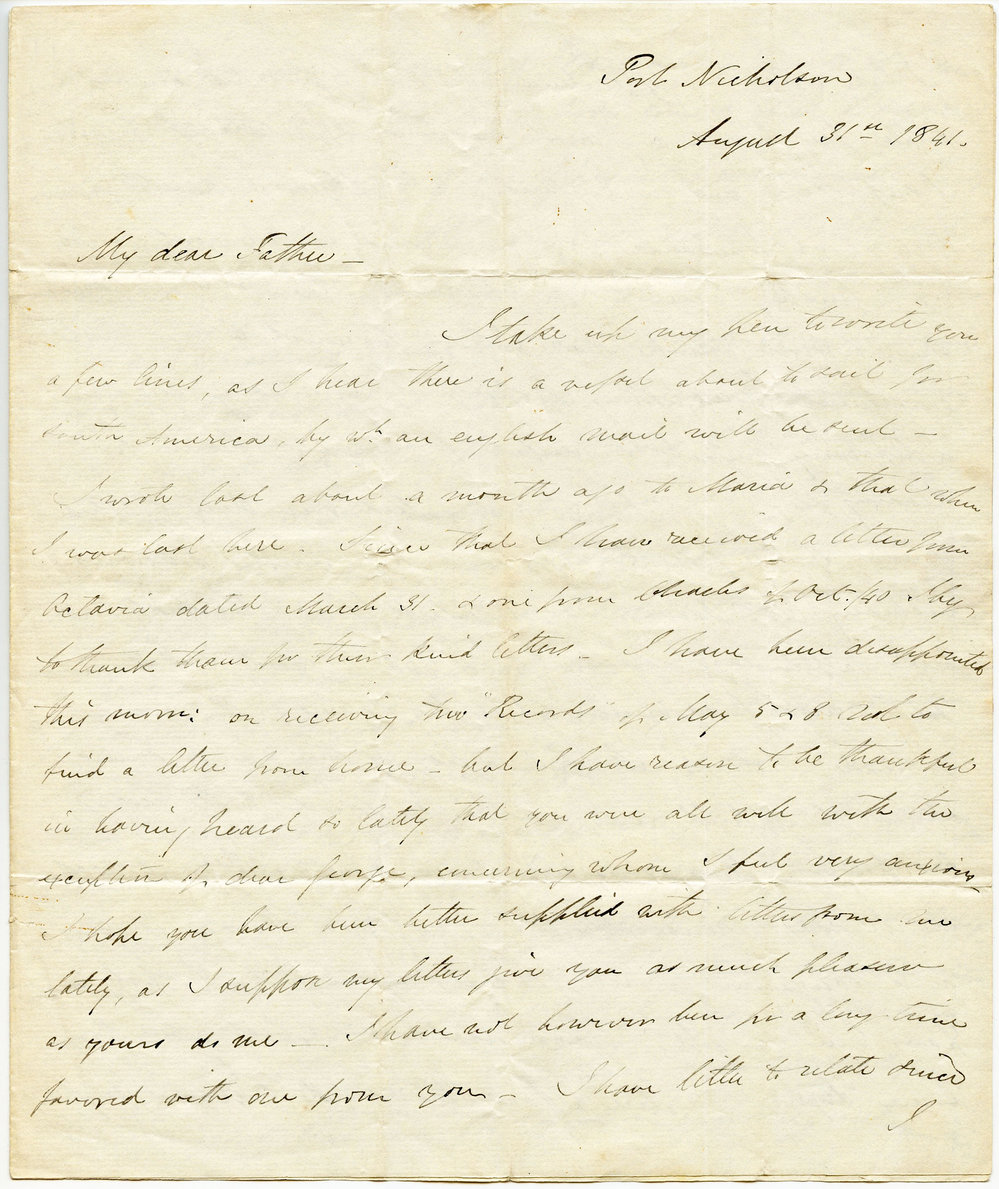 Port Nicholson
August 31st 1841.
My dear Father —
I take up my pen to write you
a few lines, as I hear there is a vessel about to sail for
south America, by wh. an english mail will be sent —
I wrote last about a month ago to Maria & that when
I was last here. Since that I have received a letter from
Octavia dated March 31. & one from Charles of Oct. /40 I beg
to thank them for their kind letters — I have been disappointed
this morn: on receiving two "Records" of May 5 & 8 not to
find a letter from home — but I have reason to be thankful
in having heard so lately that you were all well with the
exception of dear George, concerning whom I feel very anxious
I hope you have been better supplied with letters from me
lately, as I suppose my letters give you as much pleasure
as yours do me — I have not however been for a long time
favored with one from you — I have little to relate since
I